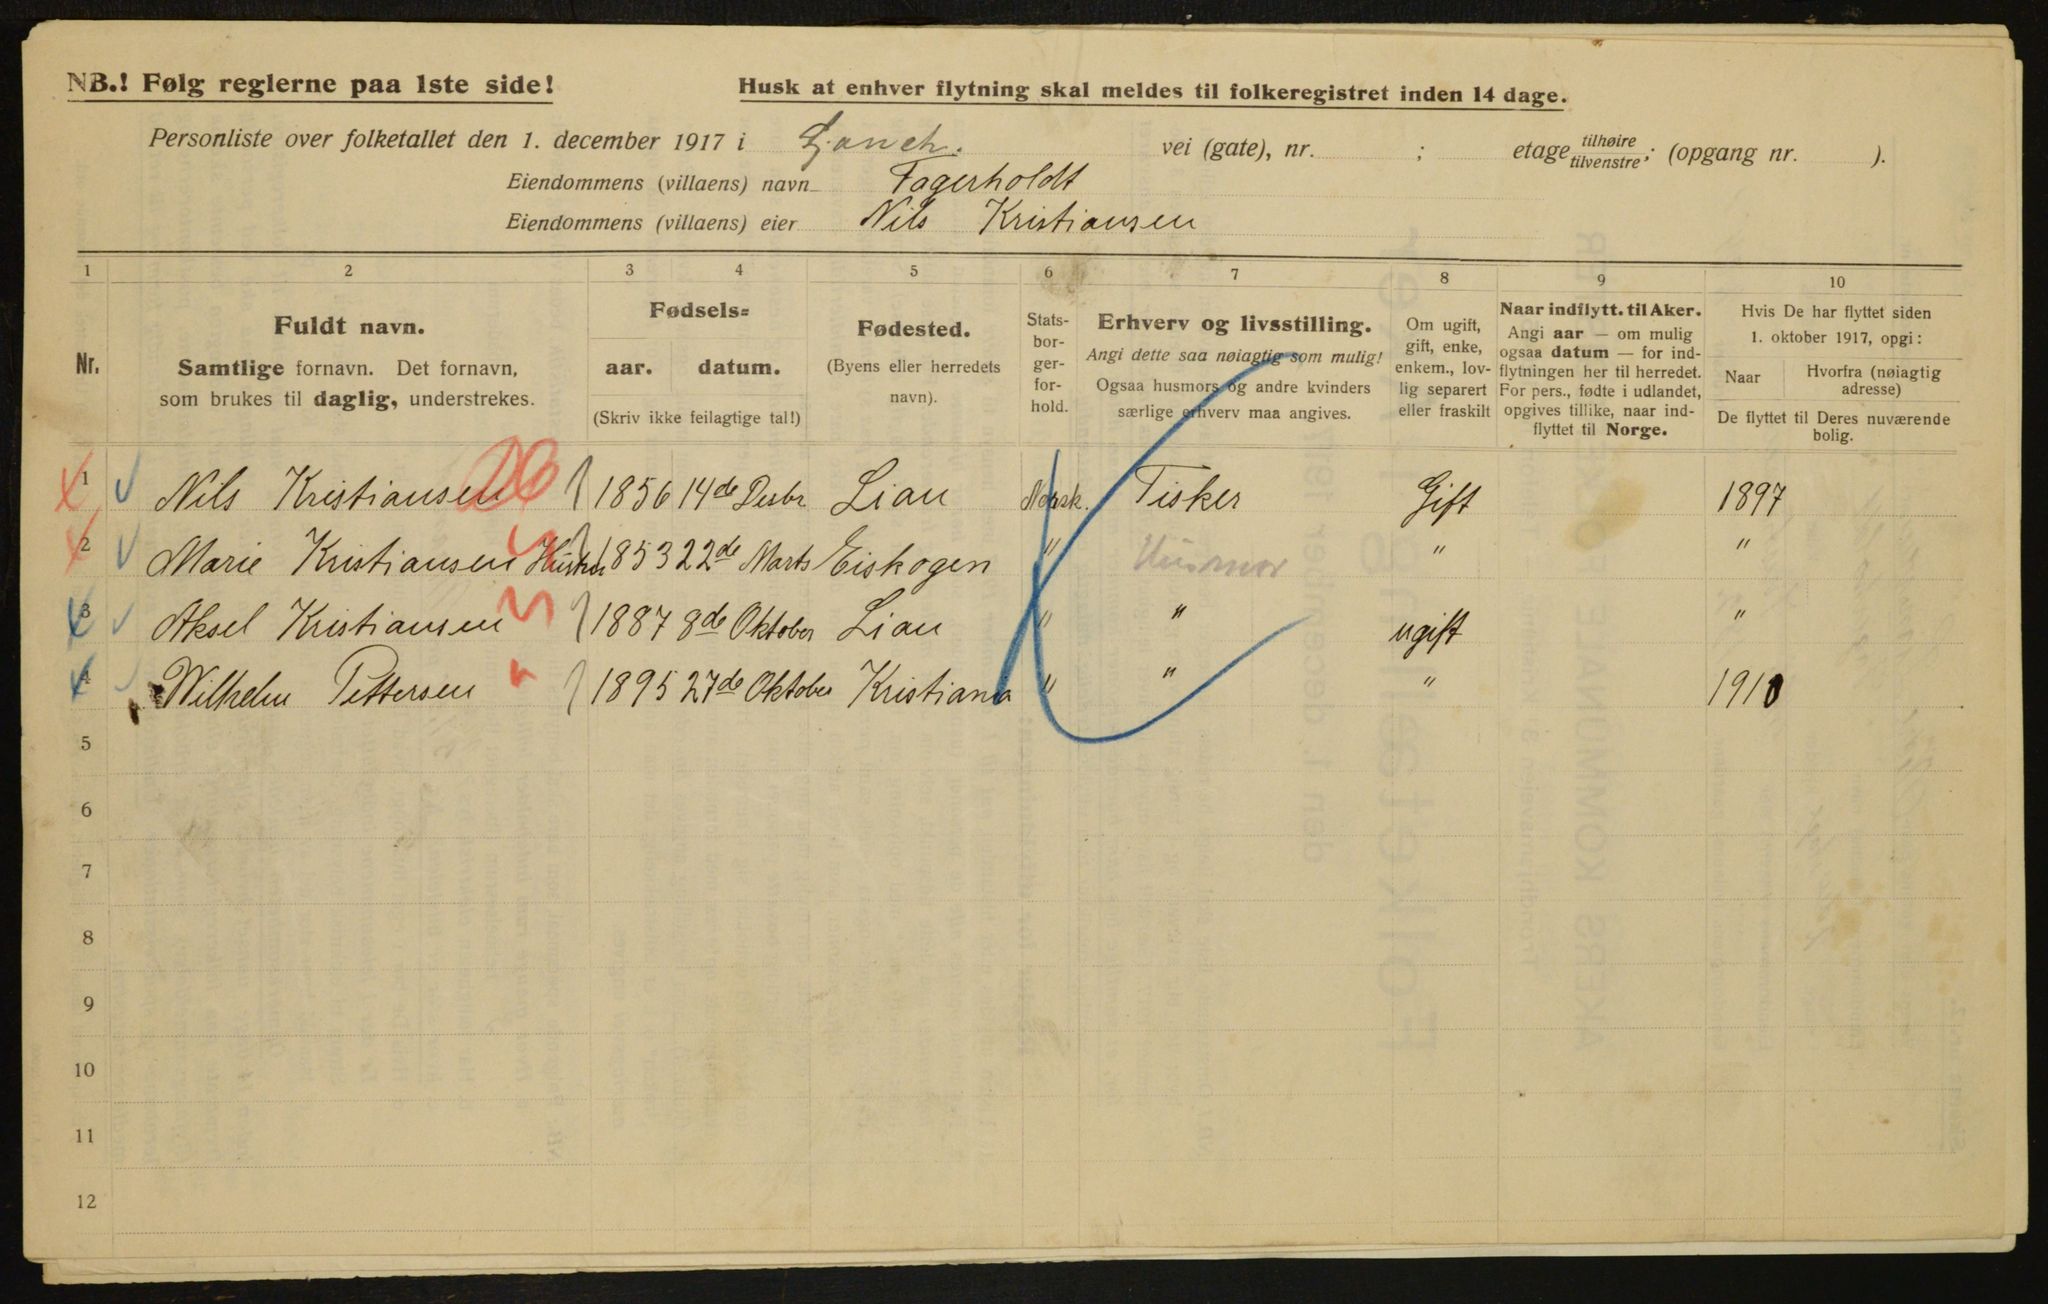 NB.! Følg reglerne paa 1ste side!
Husk at enhver flytning skal meldes til folkeregistret inden 14 dage.
Personliste over folketallet den 1. december 1917 i vei (gate), nr. ; etage tilhøire tilvenstre; (opgang nr. ).
Eiendommens (villaens) navn Fagerholdt
Eiendommens (villaens) eier Nils Kristiansen
1 2 3 4 5 6 7 8 9 10
Nr.
Fuldt navn.
Samtlige fornavn. Det fornavn,
som brukes til daglig, understrekes.
Fødsels=
aar. datum.
(Skriv ikke feilagtige tal!)
Fødested.
(Byens eller herredets
navn).
Stats-
bor-
ger-
for-
hold.
Erhverv og livsstilling.
Angi dette saa nøiagtig som mulig!
Ogsaa husmors og andre kvinders
særlige erhverv maa angives.
Om ugift,
gift, enke,
enkem., lov-
lig separert
eller fraskilt
Naar indflytt. til Aker.
Angi aar — om mulig
ogsaa datum — for ind-
flytningen her til herredet.
For pers., fødte i udlandet,
opgives tillike, naar ind-
flyttet til Norge.
Hvis De har flyttet siden
1. oktober 1917, opgi:
Naar
Hvorfra (nøiagtig
adresse)
De flyttet til Deres nuværende
bolig.
1 Nils Kristiansen 1856 14de Desbr Lian Norsk. Fisker Gift 1897
2 Marie Kristiansen 1853 22de Marts Eiskogen " Husmor " "
3 Aksel Kristiansen 1887 8de Oktober Lian " " ugift "
4 Wilhelm Pettersen 1895 27de Oktober Kristiania " " " 1910
5
6
7
8
9
10
11
12